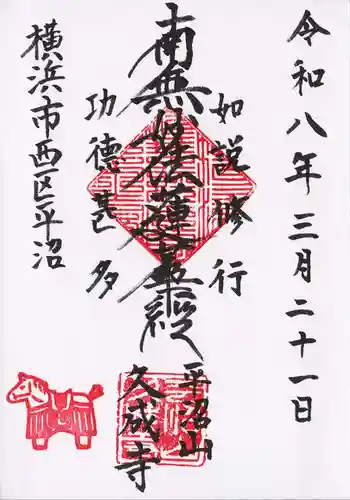 令和八年三月二十一日
如説修行
南無妙法蓮華経
功徳甚多
横浜市西区平沼
平沼山
久成寺